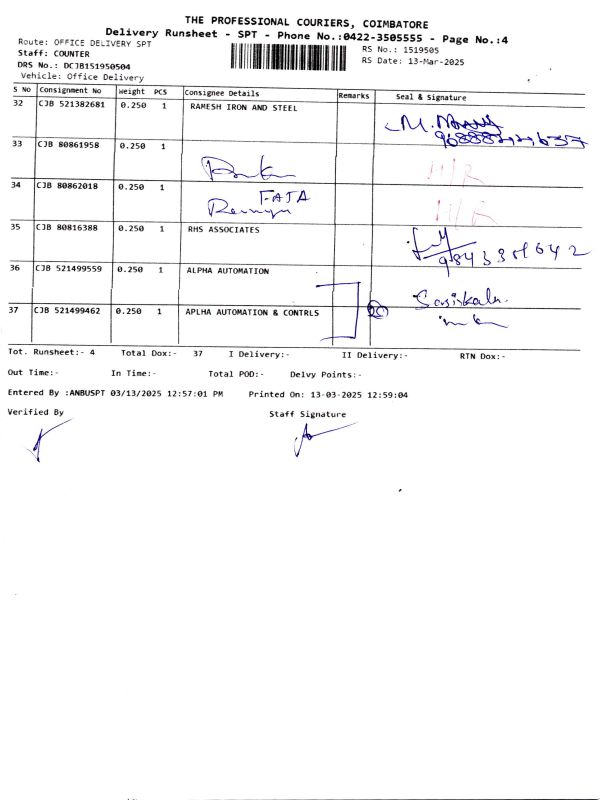 THE PROFESSIONAL COURIERS, COIMBATORE
Delivery Runsheet - SPT - Phone No.:0422-3505555 - Page No.:4
Route: OFFICE DELIVERY SPT
RS No.: 1519505
Staff: COUNTER
RS Date: 13-Mar-2025
DRS No.: DCJB151950504
Vehicle: Office Delivery
S No Consignment No Weight PCS Consignee Details Remarks Seal & Signature
32 CJB 521382681 0.250 1 RAMESH IRON AND STEEL
33 CJB 80861958 0.250 1
N/R
34 CJB 80862018 0.250 1 FATA
N/R
35 CJB 80816388 0.250 1 RHS ASSOCIATES
36 CJB 521499559 0.250 1 ALPHA AUTOMATION
Sasikala
37 CJB 521499462 0.250 1 APLHA AUTOMATION & CONTRLS
Tot. Runsheet:- 4 Total Dox:- 37 I Delivery:- II Delivery:- RTN Dox:-
Out Time:- In Time:- Total POD:- Delvy Points:-
Entered By :ANBUSPT 03/13/2025 12:57:01 PM Printed On: 13-03-2025 12:59:04
Verified By Staff Signature